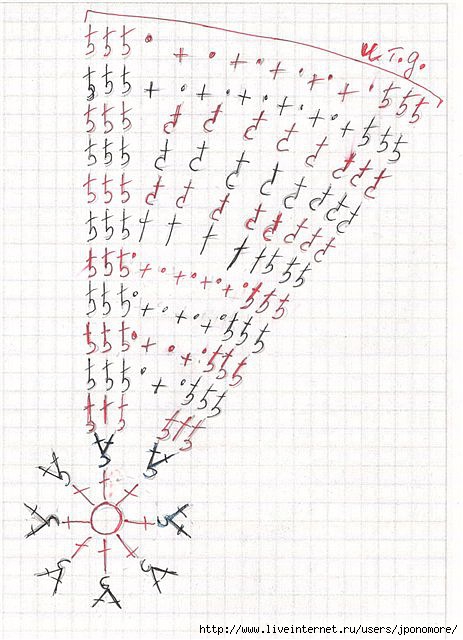 и т.д.
http://www.liveinternet.ru/users/jponomore/